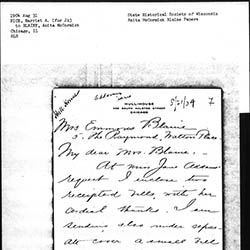 1904 Aug 31
RICE, Harriet A. (for JA)
to BLAINE, Anita McCormick
Chicago, Il
ALS
State Historical Society of Wisconsin
Anita McCormick Blaine Papers
Hull-House
Addams
HULL-HOUSE
335 SOUTH HALSTED STREET
CHICAGO
Mrs Emmons Blaine
The Raymond, Walton Place
My dear Mrs. Blaine.
At Miss Jane Addams'
request I enclose two
receipted bills, with her
cordial thanks. I am
sending also under sepa-
rate cover a small bill